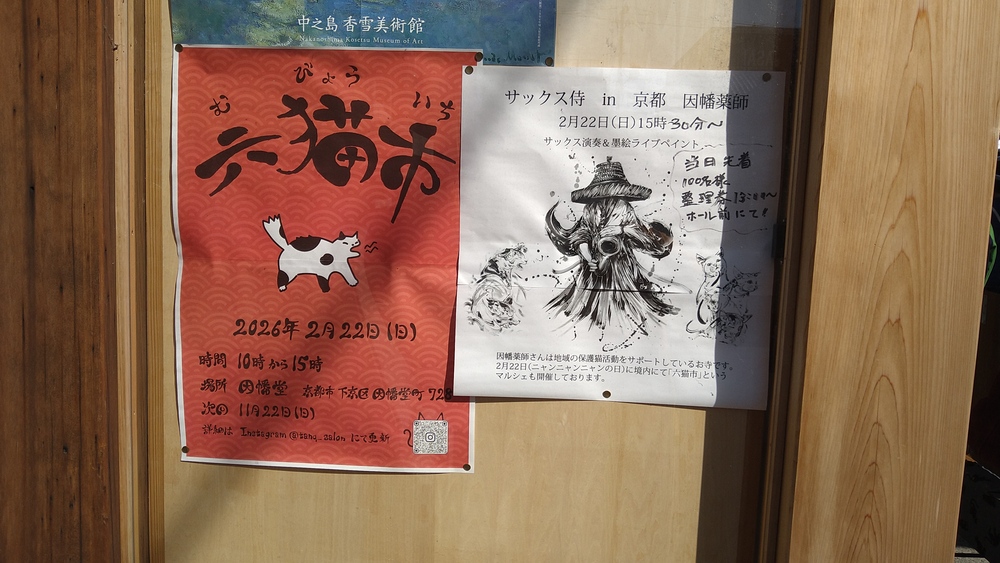 中之島 香雪美術館
Nakanoshima Kosetsu Museum of Art
む びょう いち
六猫市
2026年 2月22日(日)
時間 10時から15時
場所 因幡堂 京都市 下京区 因幡堂町 728
次回 11月22日(日)
詳細は Instagram @tanq_salon にて更新
サックス侍 in 京都 因幡薬師
2月22日(日)15時30分〜
サックス演奏&墨絵ライブペイント
当日先着
100名様
整理券13:00〜
ホール前にて!
因幡薬師さんは地域の保護猫活動をサポートしているお寺です。
2月22日(ニャンニャンニャンの日)に境内にて「六猫市」という
マルシェも開催しております。